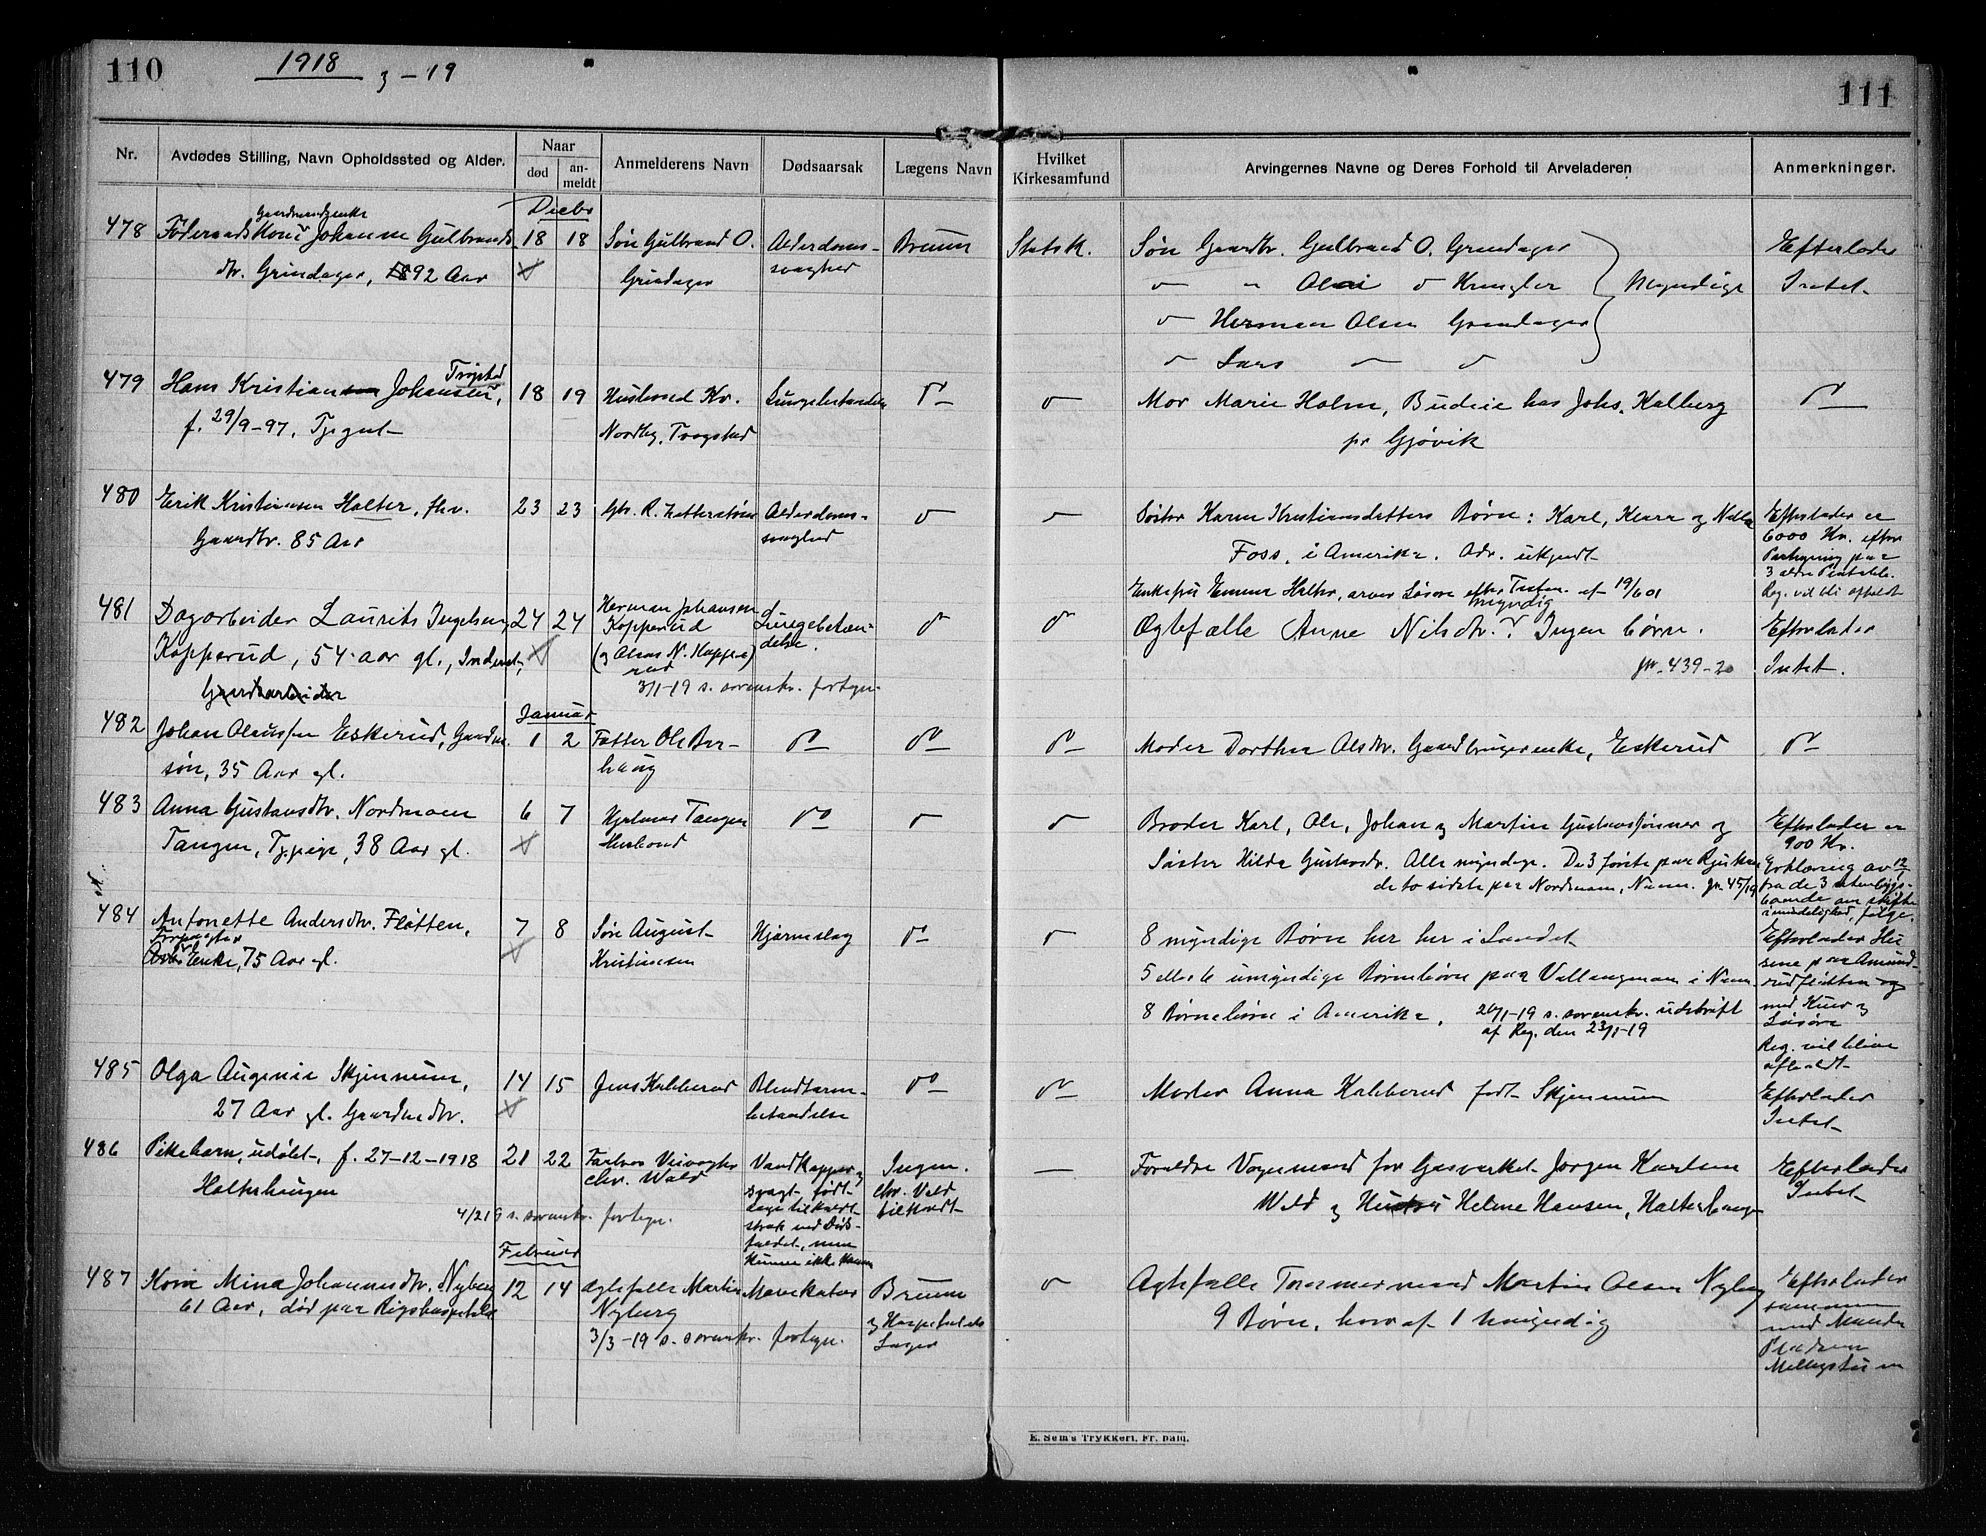 110
1918 og -19
111
Nr.
Avdødes Stilling, Navn Opholdssted og Alder.
Naar
død
an-
meldt
Anmelderens Navn
Dødsaarsak
Lægens Navn
Hvilket
Kirkesamfund
Arvingernes Navne og Deres Forhold til Arveladeren
Anmerkninger.
Decbr
478
Gaardmandsenke
Føderaadskone Johanne Gulbrands
dtr. Grindager, 92 Aar
18 18
Søn Gulbrand O.
Grindager
Alderdoms-
svaghed
Bruun
Statsk.
Søn Gaardbr. Gulbrand O. Grindager
Olai Krengler
Herman Olsen Grindager
Lars
Myndige
Efterlader
Intet
479
Trøgstad
Hans Kristian Johansen,
f. 29/9-97, Tjegut
18 19
Husbond Kr.
Nordby, Trøgstad
Lungebetændelse
Mor Marie Holm, Budeie hos Johs. Kalberg
pr Gjøvik
480
Erik Kristiansen Halter, fhv.
Gaardbr. 85 Aar
23 23
Gbr. R. Zetterstrøm
Alderdoms-
svaghed
Søster Karen Kristiansdatters Børn: Karl, Klara og
Foss, i Amerika. Adr. ukjendt
Enkefru Emma Halter, arver Løsøre efter Testm. af 19/6 01
Efterlader ca
6000 Kr. efter
paa
3 ældre
Reg. vil bli afholdt
481
Dagarbeider Laurits Ingelsen
Kopperud, 54 aar gl., Inderst,
Gaardarbeider
24 24
Herman Johansen
Kopperud
(og Olaus N. Koppe-
rud)
3/1-19 s. sorenskr. fortegn.
Lungebetæn-
delse.
Egtefælle Anne Nilsdtr. Ingen børn.
myndig
jr. 439-20
Efterlader
Intet.
Januar
482
Johan Olaussen Eskerud, Gaardm.
søn, 35 Aar gl.
1 2
Fætter Ole Ber-
haug
Moder Dorthea Olsdtr. Gaardbrugerenke, Eskerud
483
Anna Gustavsdtr. Nordmoen
Tangen, Tj.pige, 38 Aar gl.
6 7
Hjalmar Tangen
Husbond
Broder Karl, Ole, Johan og Martin Gustavssønner og
Søster Hilda Gustavsdr. Alle myndige. De 3 første paa Rjukan
de to sidste paa Nordmoen, Nænn. jr. 45/19
Efterlader ca
900 Kr.
Erklæring av 12
fra de 3
om skifte
i mindelighed, følge.
484
Antonette Andersdtr. Fløtten,
Enke, 75 Aar gl.
7 8
Søn August
Kristiansen
Hjerneslag
8 myndige Børn her her i Landet
5 eller 6 umyndige Børnebørn paa Vallangmoen i Nænn
8 Børnebørn i Amerika. 20/1-19 s. sorenskr. udskrift
af Reg. den 23/1-19
Efterlader Hu
sene paa Amund-
rudfløtten og
med Kuer og
Løsøre
Reg. vil blive
afholdt
485
Olga Augenie Skjennum,
27 Aar gl. Gaardm.dtr.
14 15
Jens Kabberud
Blindtarm-
betændelse
Moster Anna Kabberud født Skjennum
Efterlader
Intet
486
Pikebarn, udøbt, f. 27-12-1918
Halterhaugen
4/2 19 s. sorenskr. fortegn.
21 22
Farbror Veivogter
Chr. Wold
Vandkopper og
svagt født
Læge tilkaldt
strax ved Døds-
faldet, men
kunne ikke komme
Ingen.
Chr. Wold
tilkaldt
Foreldre Vognmand for Gasverket Jørgen Karlsen
Wold og Hustru Helene Hansen, Halterhaugen
Efterlader
Intet
Februar
487
Kone Mina Johannesdtr. Nyberg
61 Aar, død paa Rigshospitalet
12 14
Ægtefælle Martin
Nyberg
3/3-19 s. sorenskr. fortegn.
Mavekatar
Bruun
og Hospitalets
Læger
Ægtefælle Tømmermand Martin Olsen Nyberg
9 Børn, hvoraf 1 umyndig
Efterlader
sammen
med Manden
Pladsen
E. Sem's Trykkeri, Fr.hald.